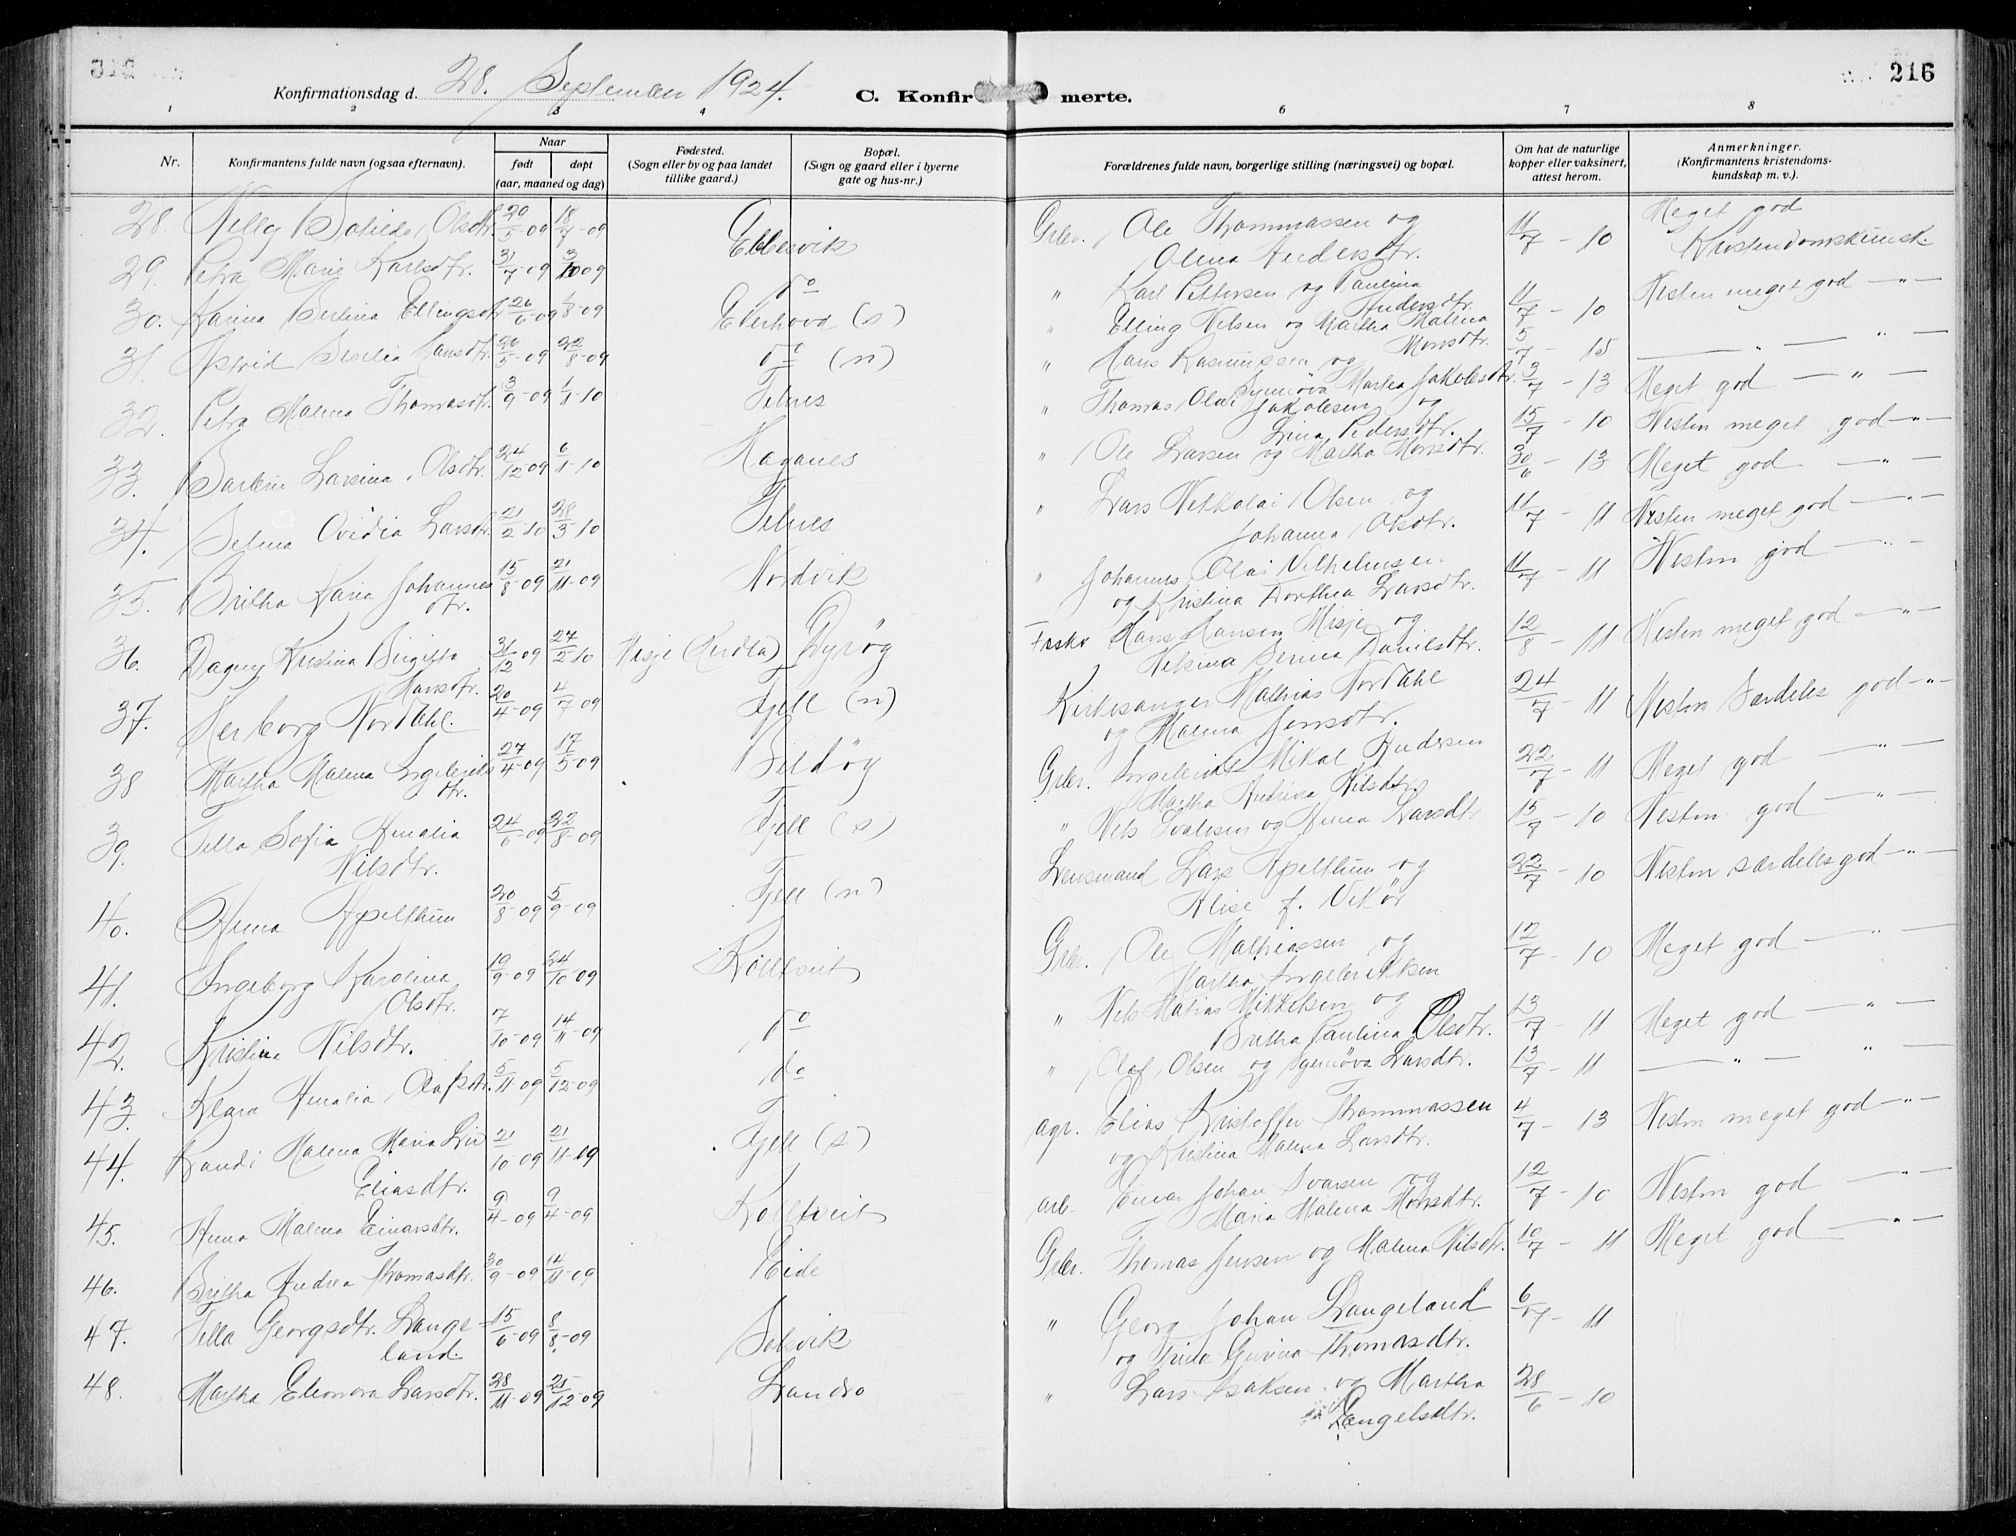 216
Konfirmationsdag d. 28. September 1924.
C. Konfirmerte.
216
1 2 3 4 6 7 8
Nr.
Konfirmantens fulde navn (ogsaa efternavn).
Naar
født døpt
(aar, maaned og dag)
Fødested.
(Sogn eller by og paa landet
tillike gaard.)
Bopæl.
(Sogn og gaard eller i byerne
gate og hus-nr.)
Forældrenes fulde navn, borgerlige stilling (næringsvei) og bopæl.
Om hat de naturlige
kopper eller vaksinert,
attest herom.
Anmerkninger.
(Konfirmantens kristendoms-
kundskap m. v.).
28. Nelly Botilde Olsdtr. 29/5-09 18/7-09 Ebbesvik Grbr. Ole Thommassen og 11/7 - 10 Meget god
Olena Andersdtr. Kristendomskunsk.
29. Petra Marie Karlsdtr. 31/7-09 3/10 09 do " Karl Pettersen og Paulina 11/7 - 10 Nesten meget god — " —
Andersdtr.
30. Karina Berlina Ellingsdtr. 26/6-09 1/8-09 Ekerhovd (s) " Elling Nilsen og Martha Malena 5/7 - 15 — " — " —
Monsdtr.
31. Astrid Sesilia Hansdtr. 20/5-09 22/8-09 do (n) " Hans Rasmussen og 3/7 - 13 Meget god — " —
Synnøva Martha Jakobsdtr.
32. Petra Malena Thomasdtr. 3/9-09 1/1-10 Telnes " Thomas Olai Jakobsen og 15/7 - 10 Nesten meget god — " —
Lina Pedersdtr.
33. Bartine Larsina Olsdtr. 24/12 09 6/1-10 Haganes " Ole Larsen og Martha Monsdtr. 30/6 - 13 Meget god — " —
34. Selma Ovidia Larsdtr. 21/2 10 28/3-10 Telnes " Lars Nikkolai Olsen og 11/7 - 11 Nesten meget god — " —
Johanna Olsdtr.
35. Britha Karia Johannes 15/8-09 21/11-09 Nordvik " Johannes Olai Vilhelmsen 11/7 - 11 Nesten god — " —
dtr. og Kristina Dorthea Larsdtr.
36. Dagny Kristina Birgitte 31/12-09 27/2-10 Misje (Herdla) Dyrøy Fisker Hans Hansen Misje og 12/8 - 11 Nesten meget god — " —
Hansdtr. Nilsina Serina Danielsdtr.
37. Herborg Nordahl. 20/4-09 4/7 09 Fjell (n) Kirkesanger Mathias Nordahl 24/7 - 11 Nesten særdeles god — " —
og Malena Jensdtr.
38 Martha Malena Ingebrikts 27/4-09 17/5-09 Bildøy Grbr. Ingebrikt Mikal Andersen 22/7 - 11 Meget god — " —
dtr. Martha Andrina Nilsdtr.
39. Tilla Sofia Amalia 24/6-09 22/8-09 Fjell (s) " Nils Ivarsen og Anna Larsdtr 15/7 - 10 Nesten god — " —
Nilsdtr.
40. Anna Apelthun 20/8-09 5/9-09 Fjell (n) Lensmand Lars Apelthun og 22/7 - 10 Nesten særdeles god — " —
Alise f. Vikør
41. Ingeborg Karolina 19/9-09 24/10-09 Kolltveit Grbr. Ole Mathiassen og 12/7 - 10 Meget god — " —
Olsdtr. Martha Ingebriktsen
42. Kristine Nilsdtr. 7/10-09 14/11-09 do " Nils Matias Mikkelsen og 13/7 - 11 Meget god — " —
Britha Paulina Olsdtr.
43. Klara Amalia Olafsdtr. 5/11-09 5/12-09 do " Olaf Olsen og Synnøva Larsdtr. 13/7 - 11 — " — " —
44. Randi Malena Maria Liv 21/10-09 21/11-09 Fjell (s) agr. Elias Kristoffer Thommassen 4/7 - 13 Nesten meget god — " —
Eliasdtr. og Kristina Malena Larsdtr.
45. Anna Malena Einarsdtr. 9/4-09 9/4-09 Kolltveit arb. Einar Johan Ivarsen og 12/7 - 10 Nesten god — " —
Maria Malena Monsdtr.
46. Britha Andrea Thomasdtr. 30/9-09 14/11-09 Eide Grbr. Thomas Jensen og Malena Nilsdtr. 10/7 - 11 Meget god — " —
47. Tilla Georgsdtr. Lange- 15/6-09 8/8-09 Solsvik " Georg Johan Langeland 6/7 - 11
land. og Trina Gurina Thomasdtr.
48. Martha Eleonora Larsdtr. 28/11-09 25/12-09 Landro " Lars Isaksen og Martha 28/6 - 10
Engelsdtr.